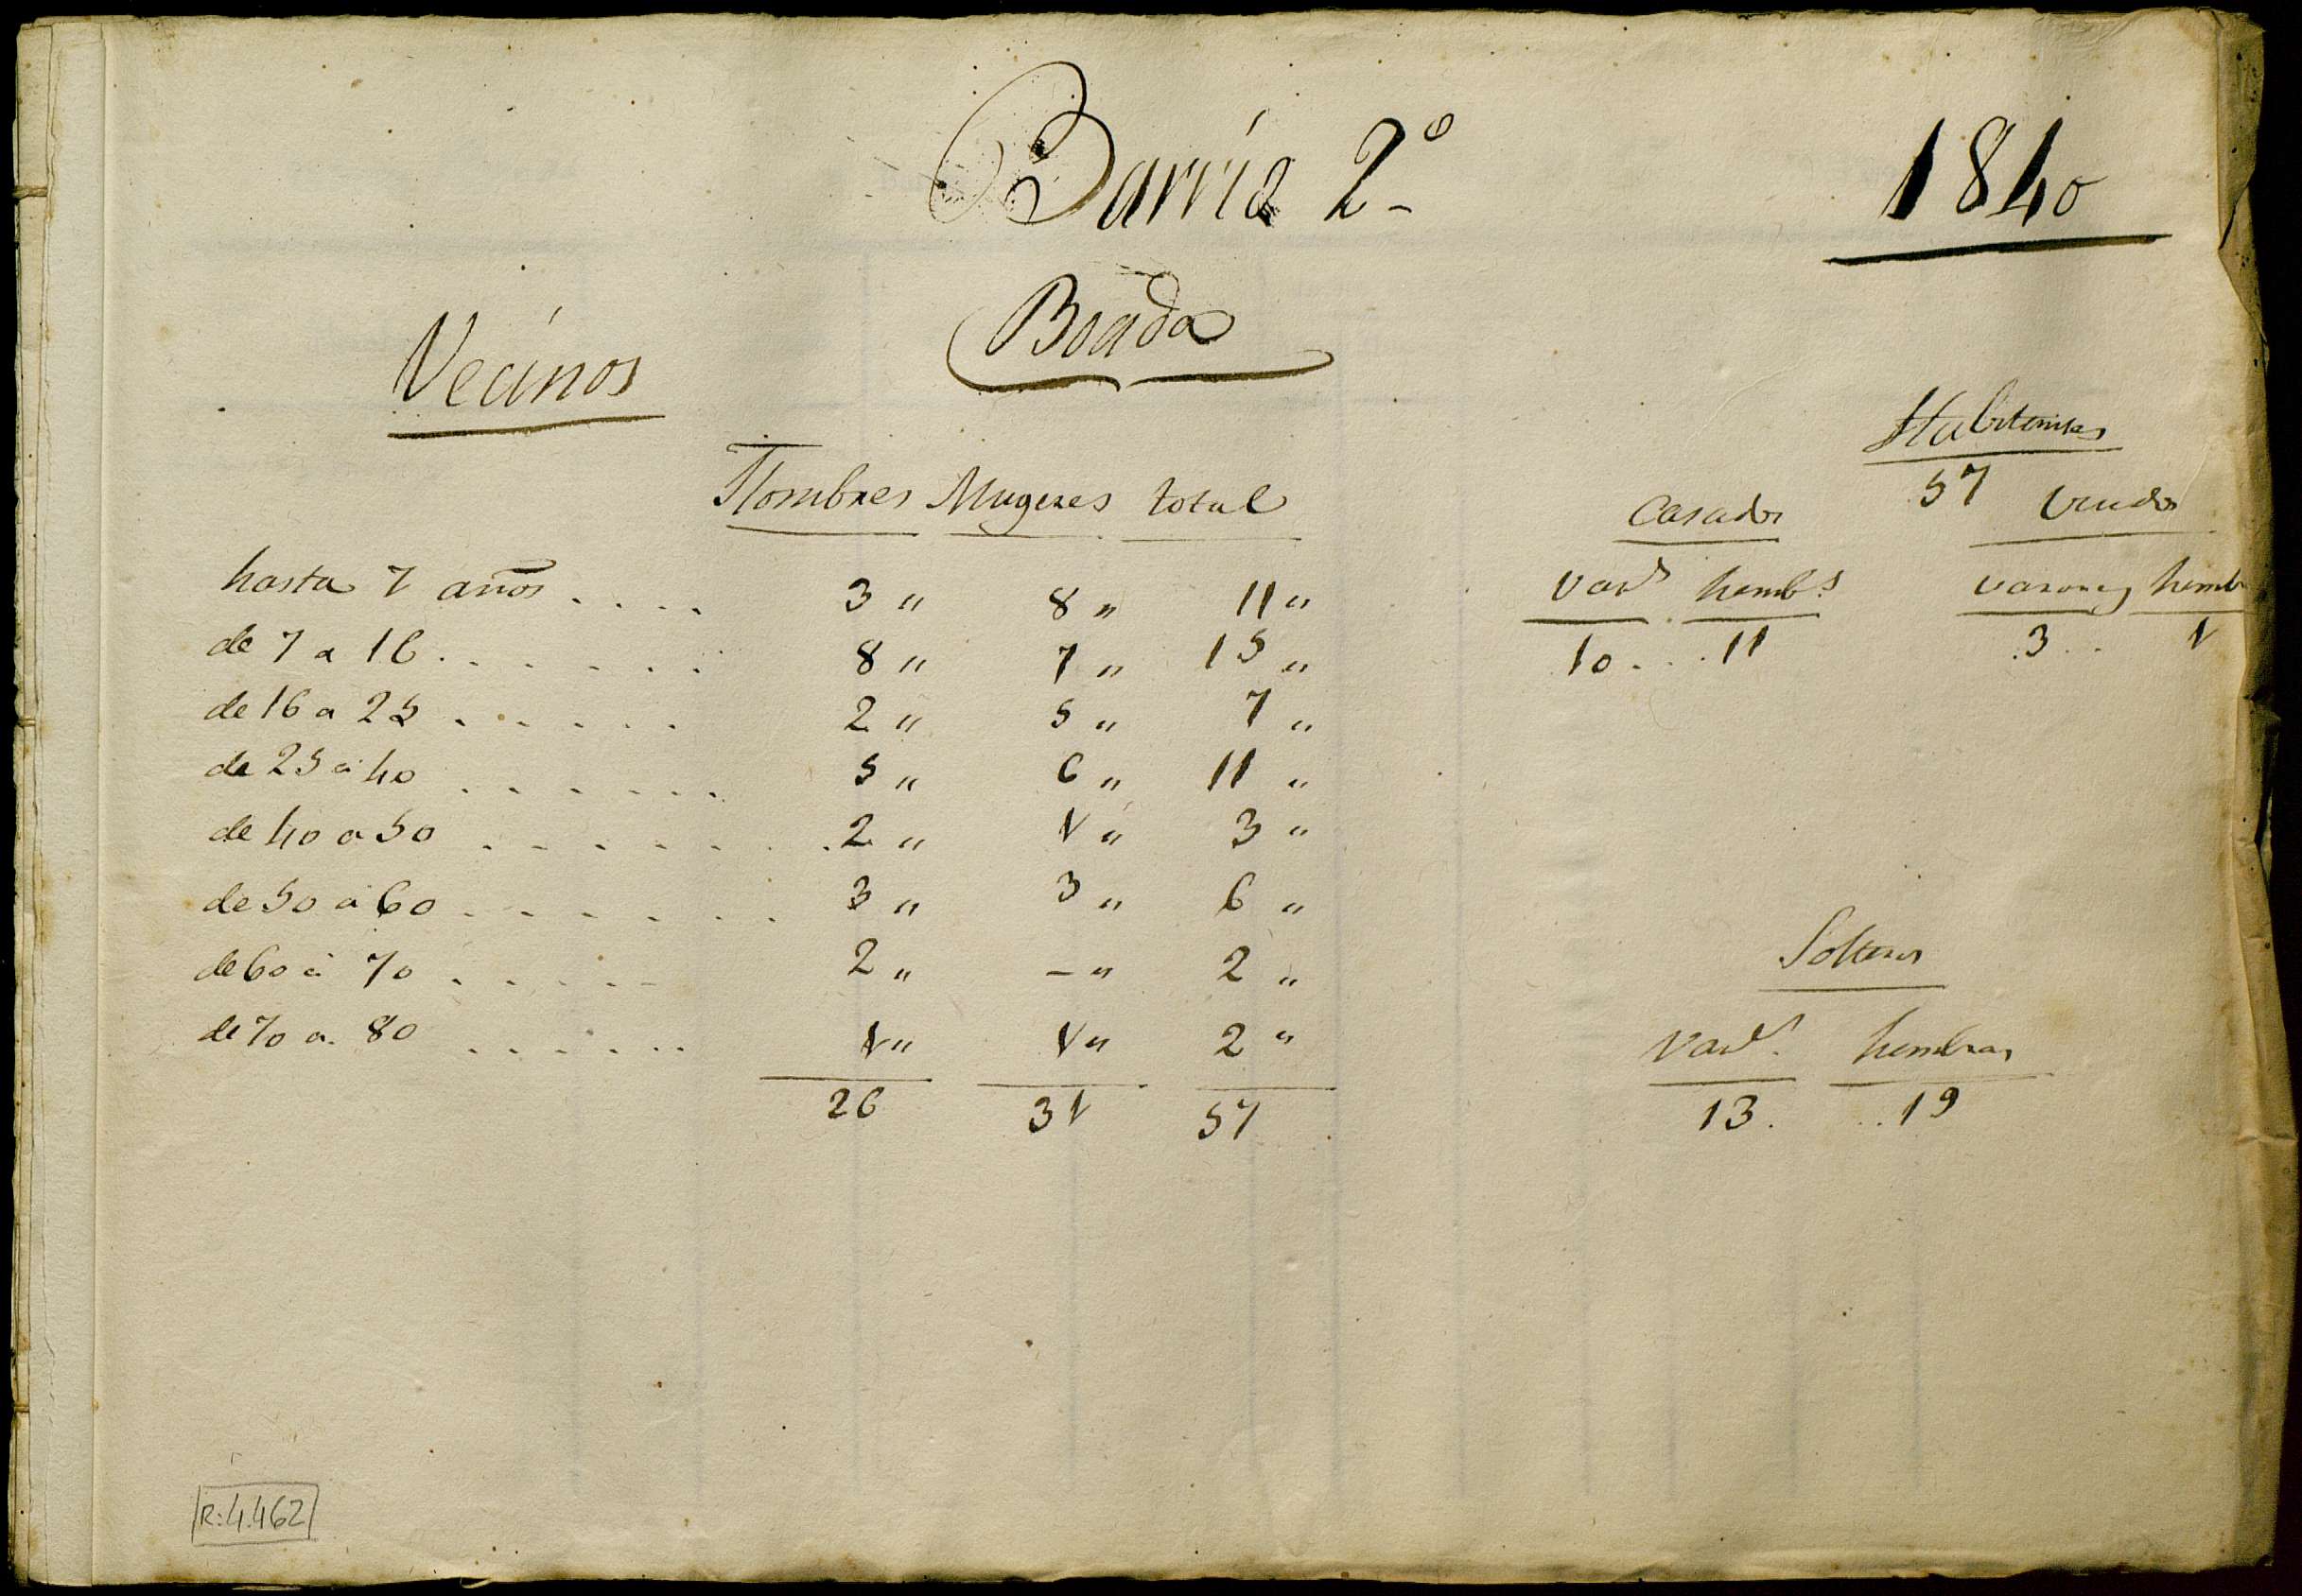 Barrio 2º
1840
Boada
Vecinos
Habitantes
57
Hombres Mugeres total
Casados Viudos
hasta 7 años . . . . 3 " 8 " 11 "
Var.s hemb.s varones hemb
de 7 a 16 . . . . . . 8 " 7 " 15 "
10 . . . 11 3 . . 1
de 16 a 25 . . . . . 2 " 5 " 7 "
de 25 a 40 . . . . . . 5 " 6 " 11 "
de 40 a 50 . . . . . . . 2 " 1 " 3 "
de 50 a 60 . . . . . . 3 " 3 " 6 "
de 60 a 70 . . . . . 2 " - " 2 "
Solteros
de 70 a 80 . . . . . . 1 " 1 " 2 "
Var.s hembras
26 31 57
13 . . . 19
R: 4.462